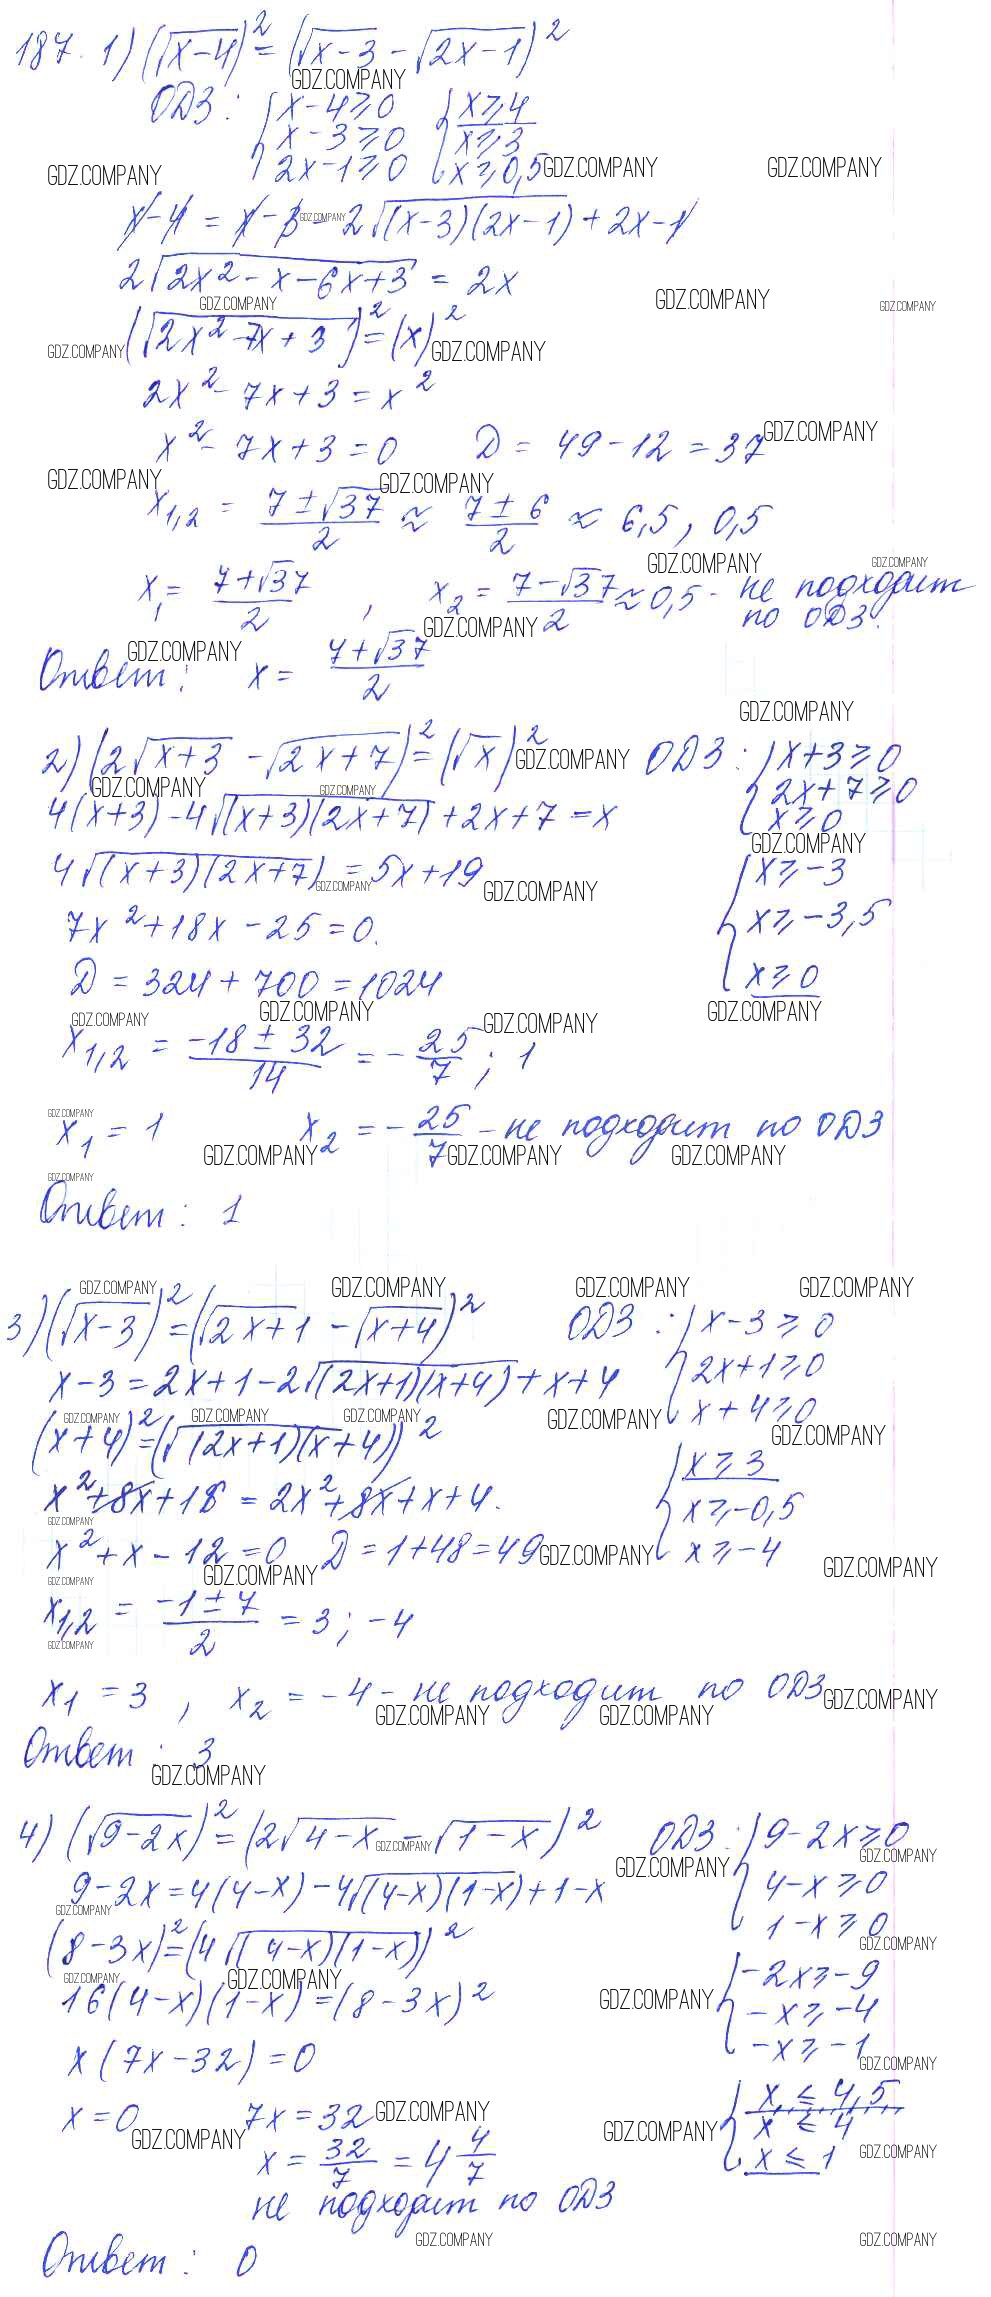 187. 1) (√(x-4))² = (√(x-3) - √(2x-1))²
ОДЗ: { x-4≥0 { x≥4
x-3≥0 x≥3
2x-1≥0 x≥0,5
x-4 = x-3 - 2√((x-3)(2x-1)) + 2x-1
2√(2x²-x-6x+3) = 2x
(√(2x²-7x+3))² = (x)²
2x²-7x+3 = x²
x²-7x+3=0 D = 49-12 = 37
x₁,₂ = (7±√37)/2 ≈ (7±6)/2 ≈ 6,5, 0,5
x₁ = (7+√37)/2 , x₂ = (7-√37)/2 ≈ 0,5 - не подходит
по ОДЗ.
Ответ: x = (7+√37)/2
2) (2√(x+3) - √(2x+7))² = (√x)² ОДЗ: { x+3≥0
2x+7≥0
x≥0
4(x+3) - 4√((x+3)(2x+7)) + 2x+7 = x
4√((x+3)(2x+7)) = 5x+19
{ x≥-3
x≥-3,5
x≥0
7x²+18x-25=0.
D = 324+700 = 1024
x₁,₂ = (-18±32)/14 = -25/7; 1
x₁ = 1 x₂ = -25/7 - не подходит по ОДЗ
Ответ: 1
3) (√(x-3))² = (√(2x+1) - √(x+4))² ОДЗ: { x-3≥0
2x+1≥0
x+4≥0
x-3 = 2x+1-2√((2x+1)(x+4)) + x+4
(x+4)² = (√((2x+1)(x+4)))²
{ x≥3
x≥-0,5
x≥-4
x²+8x+16 = 2x²+8x+x+4.
x²+x-12=0 D = 1+48 = 49
x₁,₂ = (-1±7)/2 = 3; -4
x₁ = 3, x₂ = -4 - не подходит по ОДЗ
Ответ: 3
4) (√(9-2x))² = (2√(4-x) - √(1-x))² ОДЗ: { 9-2x≥0
4-x≥0
1-x≥0
9-2x = 4(4-x) - 4√((4-x)(1-x)) + 1-x
(8-3x)² = (4√((4-x)(1-x)))²
{ -2x≥-9
-x≥-4
-x≥-1
16(4-x)(1-x) = (8-3x)²
x(7x-32)=0
{ x≤4,5
x≤4
x≤1
x=0 7x=32
x = 32/7 = 4 4/7
не подходит по ОДЗ
Ответ: 0
GDZ.COMPANY